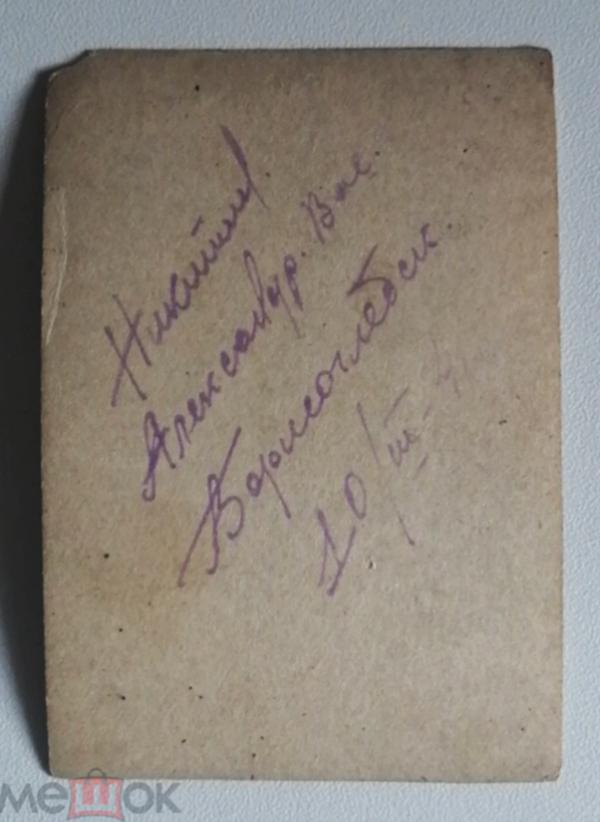 Никитин
Александр. Вас.
Борисоглебск.
10/III-
мешок